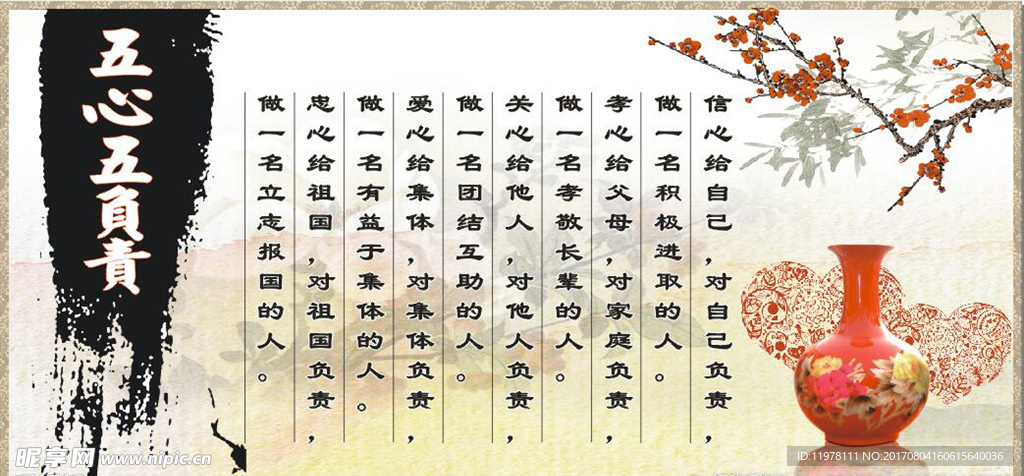 五心五負責
信心给自己，对自己负责，
做一名积极进取的人。
孝心给父母，对家庭负责，
做一名孝敬长辈的人。
关心给他人，对他人负责，
做一名团结互助的人。
爱心给集体，对集体负责，
做一名有益于集体的人。
忠心给祖国，对祖国负责，
做一名立志报国的人。
昵享网 www.nipic.cn
ID:11978111 NO:20170804160615640036